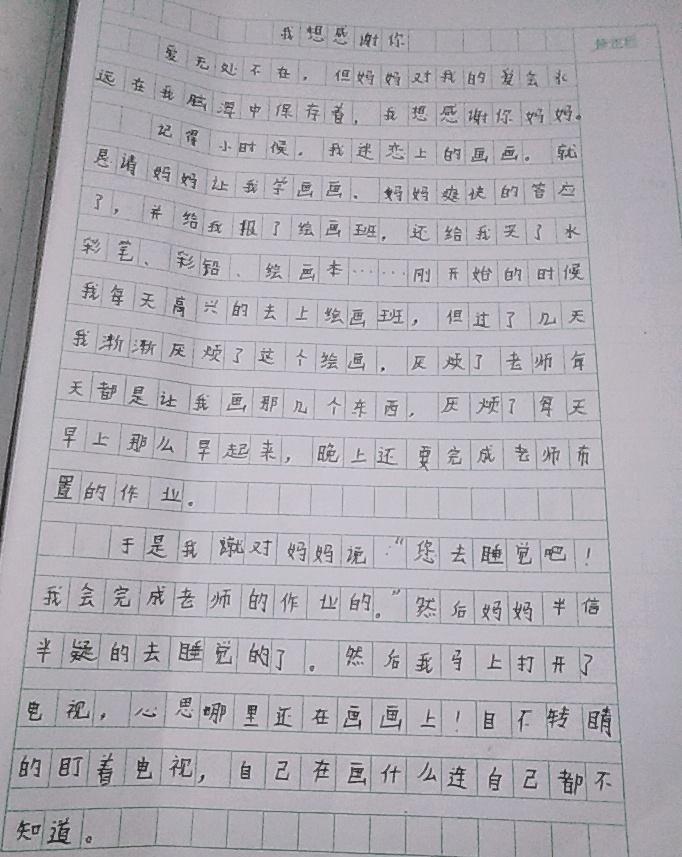 我想感谢你
爱无处不在，但妈妈对我的爱会永
远在我脑海中保存着，我想感谢你妈妈。
记得小时候，我迷恋上的画画。就
恳请妈妈让我学画画、妈妈爽快的答应
了，并给我报了绘画班，还给我买了水
彩笔、彩铅、绘画本……刚开始的时候
我每天高兴的去上绘画班，但过了几天
我渐渐厌烦了这个绘画，厌烦了老师每
天都是让我画那几个东西，厌烦了每天
早上那么早起来，晚上还要完成老师布
置的作业。
于是我就对妈妈说："您去睡觉吧！
我会完成老师的作业的。"然后妈妈半信
半疑的去睡觉的了。然后我马上打开了
电视，心思哪里还在画画上！目不转睛
的盯着电视，自己在画什么连自己都不
知道。